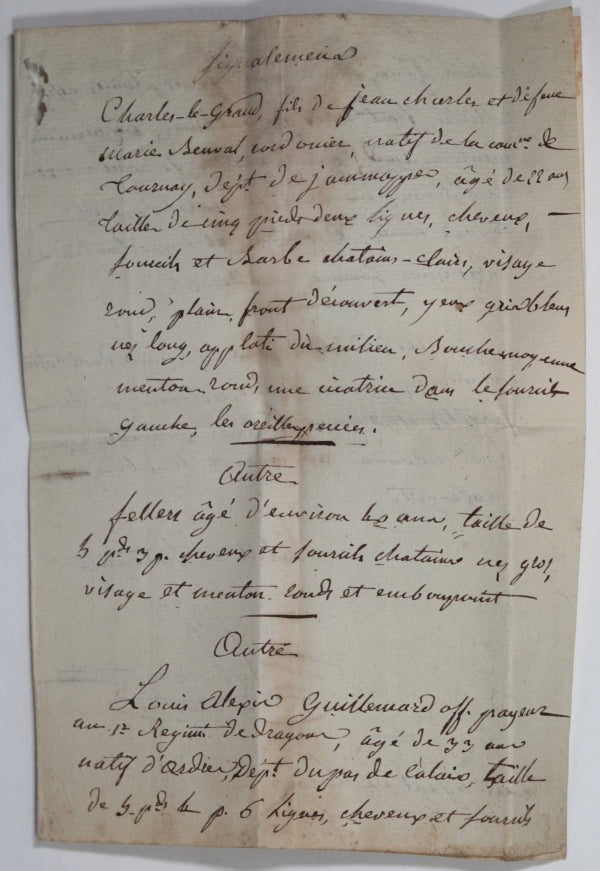 Signalemens
Charles-le-Grand, fils de jean charles et de feue
Marie Benval, cordonier, natif de la comne de
Tournay, dept de jemmappes, âgé de 22 ans
taille de cinq pieds deux lignes, cheveux, —
sourcils et Barbe chatains-clairs, visage
rond, plain, front découvert, yeux gris bleus
nés long, applati du milieu, Bouche moyenne
menton rond, une cicatrice dans le sourcils
gauche, les oreilles percées.
Autre
fellers âgé d'environ ans, taille de
5 pds 3 p. cheveux et sourcils chatains nez gros,
visage et menton ronds et embonpoint
Autre
Louis Alexis Guillemard off. payeur
au 1er Regimt de dragons, âgé de 33 ans
natif d'Ardres, Dept du pas de Calais, taille
de 5 pds p. 6 Lignes, cheveux et sourcils